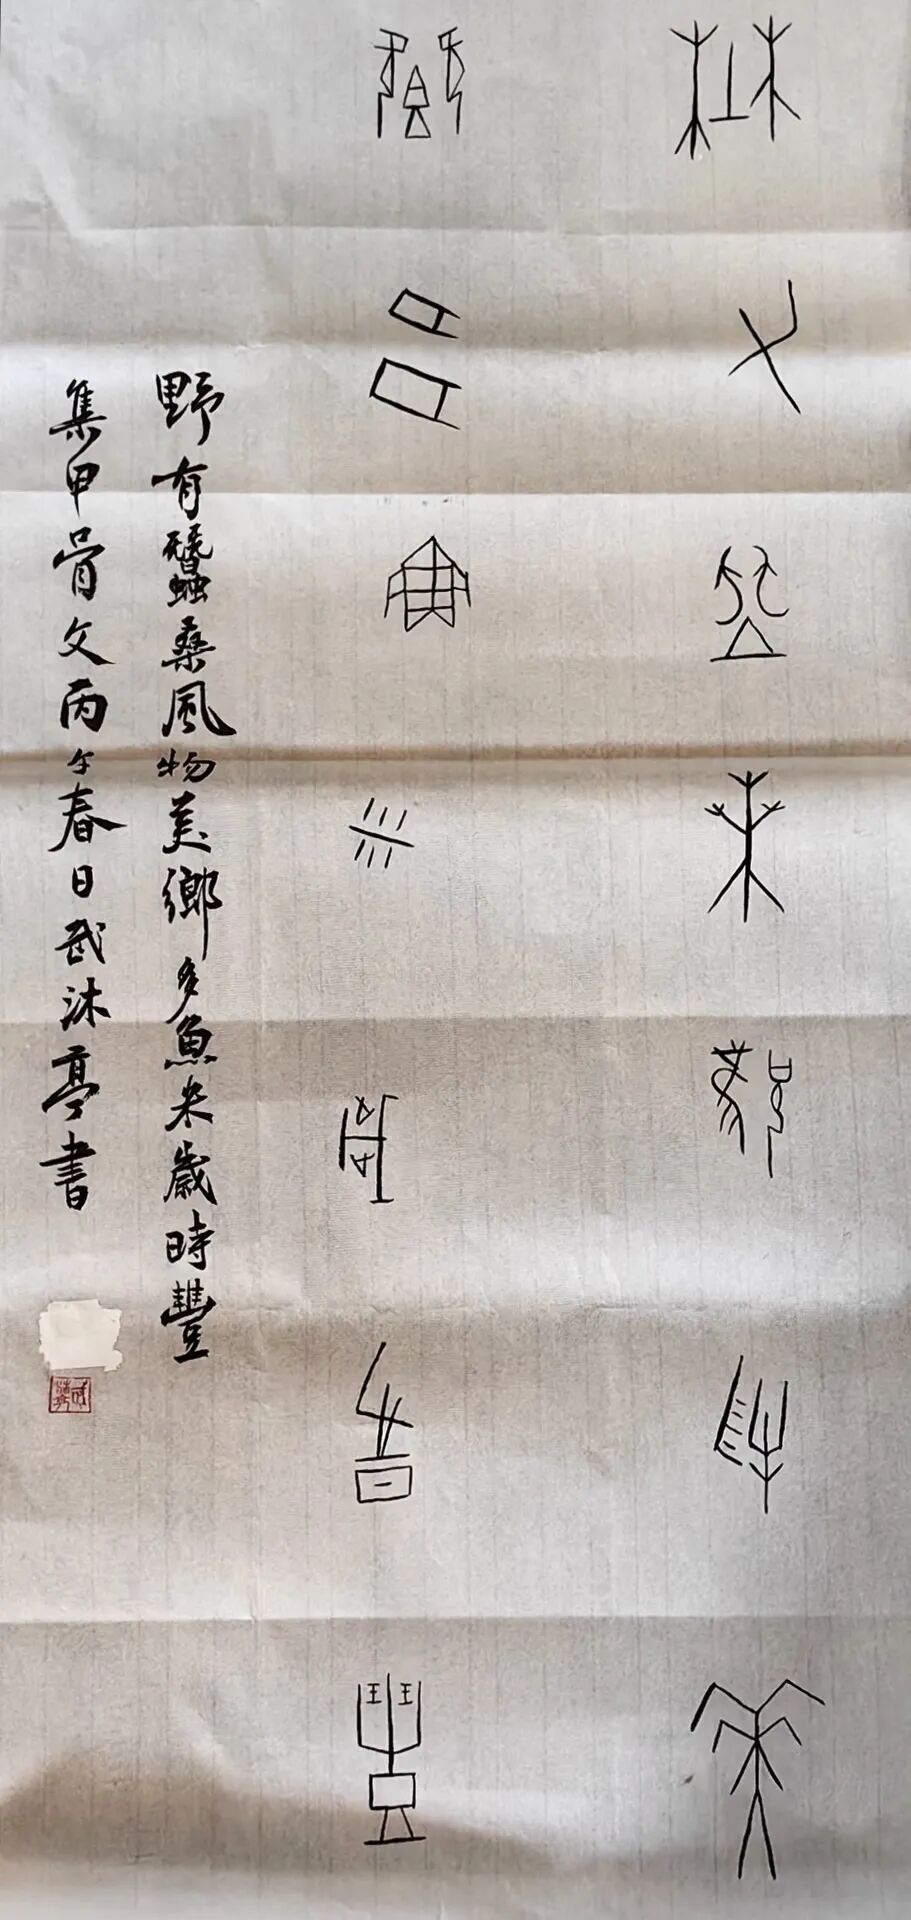 野有蠶桑風物美
鄉多魚米歲時豐
野有蠶桑風物美鄉多魚米歲時豐
集甲骨文丙午春日武沐亭書